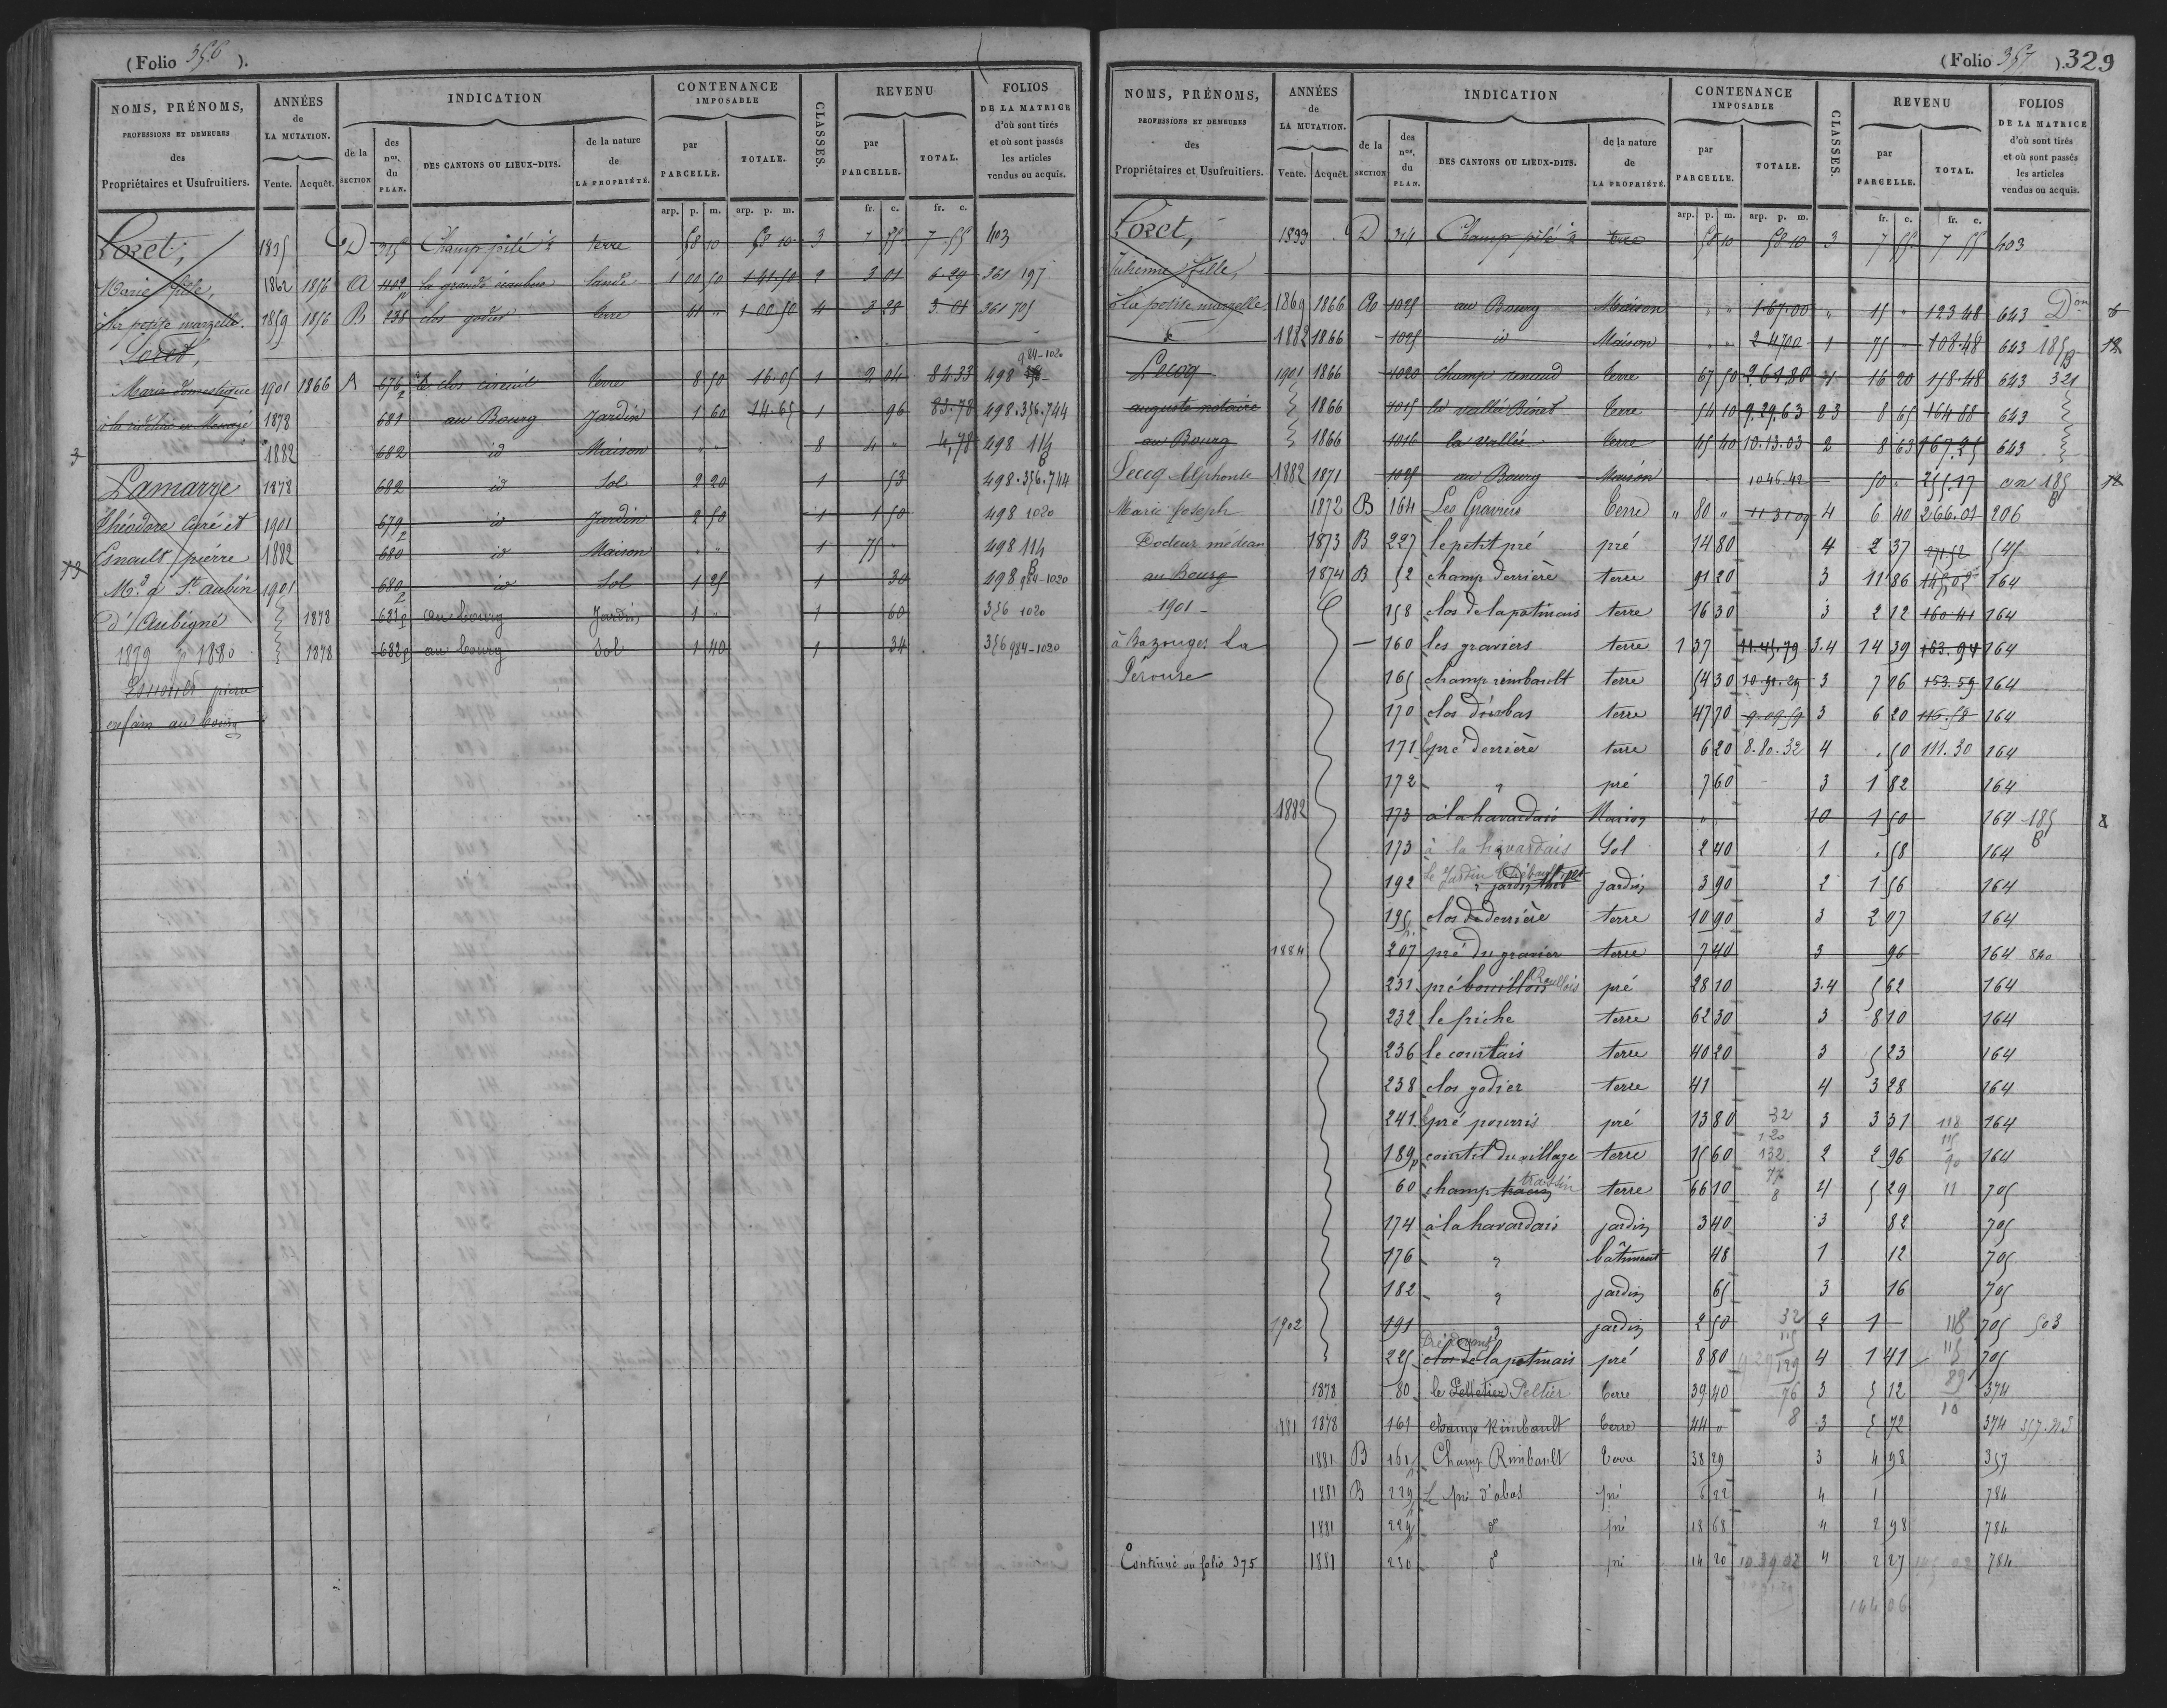 (Folio 356 ).
NOMS, PRÉNOMS, PROFESSIONS ET DEMEURES des Propriétaires et Usufruitiers.
ANNÉES de LA MUTATION. Vente. Acquêt.
INDICATION de la SECTION des nos. du PLAN. DES CANTONS OU LIEUX-DITS. de la nature de LA PROPRIÉTÉ.
CONTENANCE IMPOSABLE par PARCELLE. TOTALE.
CLASSES.
REVENU par PARCELLE. TOTAL.
FOLIOS DE LA MATRICE d'où sont tirés et où sont passés les articles vendus ou acquis.
arp. p. m. arp. p. m. fr. c. fr. c.
Loret, 1835 D 315 Champ pilé terre 58 10 58 10 3 7 55 7.55 403
Marie fille, 1862 1856 A lande 1 00 50 1 41 50 2 3 01 6.29 361 197
à la petite marzelle. 1859 1856 B 238 clos godier terre 41 " 1 00 50 4 3 28 3.01 361 705
Loret,
984-1020
Marie domestique 1901 1866 A 676 terre 8 50 16.05 1 2 04 84.33 498
1878 681 au Bourg Jardin 1 60 14.65 1 96 83.78 498.356.744
3 1882 682 id Maison " " 8 4 " 4,78 498 114 B
Lamarre 1878 682 id Sol 2 20 1 53 498.356.744
Théodore Curé et 1901 679 id Jardin 2 50 1 1 50 498 1020
Esnault pierre 1882 680 id Maison " " 1 75 " 498 114 B
13 Md. à St. aubin 1901 680 id Sol 1 25 1 30 498 984-1020
d'Aubigné 1878 681p au bourg Jardin 1 " 1 60 356 1020
1879 pr 1880 1878 682p au bourg Sol 1 40 1 34 356 984-1020
Esnault pierre
au bourg
(Folio 357 ). 329
NOMS, PRÉNOMS, PROFESSIONS ET DEMEURES des Propriétaires et Usufruitiers.
ANNÉES de LA MUTATION. Vente. Acquêt.
INDICATION de la SECTION des nos. du PLAN. DES CANTONS OU LIEUX-DITS. de la nature de LA PROPRIÉTÉ.
CONTENANCE IMPOSABLE par PARCELLE. TOTALE.
CLASSES.
REVENU par PARCELLE. TOTAL.
FOLIOS DE LA MATRICE d'où sont tirés et où sont passés les articles vendus ou acquis.
arp. p. m. arp. p. m. fr. c. fr. c.
Loret, 1833 D 314 Champ pilé terre 58 10 58 10 3 7 55 7 55 403
Julienne fille,
à la petite marzelle 1869 1866 A 1025 au Bourg Maison " " 1.67.00 " 15 " 123 48 643 Don 6
1882 1866 - 1025 id Maison " " 2 4700 1 75 " 108.48 643 185 B 12
Lecoq 1901 1866 1020 Champ renaud terre 67 50 2,61.80 4 16 20 158.48 643 321
auguste notaire 1866 1015 la vallée Binet terre 54 10 9.29.63 2 3 8 65 164 88 643
au Bourg 1866 1016 la vallée terre 45 40 10.13.03 2 8 63 167.25 643
Lecoq Alphonse 1882 1871 1025 au Bourg Maison 1046.42 50 " 255.17 on 185 B 12
Marie Joseph 1872 B 164 Les Graviers terre " 80 " 11 31 09 4 6 40 266.01 206
Docteur médecin 1873 B 227 le petit pré pré 14 80 4 2 37 271.52 545
au Bourg 1874 B 52 champ derrière terre 91 20 3 11 86 145,02 164
-1901- 158 clos de la potinais terre 16 30 3 2 12 160 41 164
à Bazouges la 160 les graviers terre 1 37 11.45.79 3.4 14 39 163.94 164
Pérouse 165 champ rimbault terre 54 30 10.91.29 3 7 06 153.59 164
170 clos d'en bas terre 47 70 9.09 59 3 6 20 116.58 164
171 pré derrière terre 6 20 8.80.32 4 " 50 111.30 164
172 " pré 7 60 3 1 82 164
1882 173 à la havardais Maison " " 10 1 50 164 185 B 8
173 à la havardais Sol 2 40 1 " 58 164
192 Le Jardin Thébault jardin 3 90 2 1 56 164
195 clos de derrière terre 10 90 3 2 07 164
1884 207 pré du gravier terre 7 40 3 96 164 840
231 pré bouillois Roullois pré 28 10 3.4 5 62 164
232 le friche terre 62 30 3 8 10 164
236 le courtais terre 40 20 3 5 23 164
238 clos godier terre 41 4 3 28 164
241 pré pourris pré 13 80 32 3 3 31 118 164
189p courtil du village terre 15 60 120 132 2 2 96 115 90 164
60 champ trassin terre 66 10 77 8 4 5 29 11 705
174 à la havardais jardin 3 40 3 82 705
176 " bâtiment 48 1 12 705
182 " jardin 65 3 16 705
1902 191 " jardin 2 50 32 2 1 118 705 503
225 Pré devant clos de la potinais pré 8 80 115 129 4 1 41 115 705
1878 80 le Pelletier Peltier terre 39 40 76 3 5 12 89 374
1881 1878 161 Champ Rimbault terre 44 " 8 3 5 72 10 374
1881 B 161 Champ Rimbault terre 38 29 3 4 98 357
1881 B 229 Le pré d'abas pré 6 22 4 1 784
1881 229 do pré 18 68 4 2 98 784
Continué au folio 375 1881 230 do pré 14 20 10 39 02 4 2 27 784
144 06